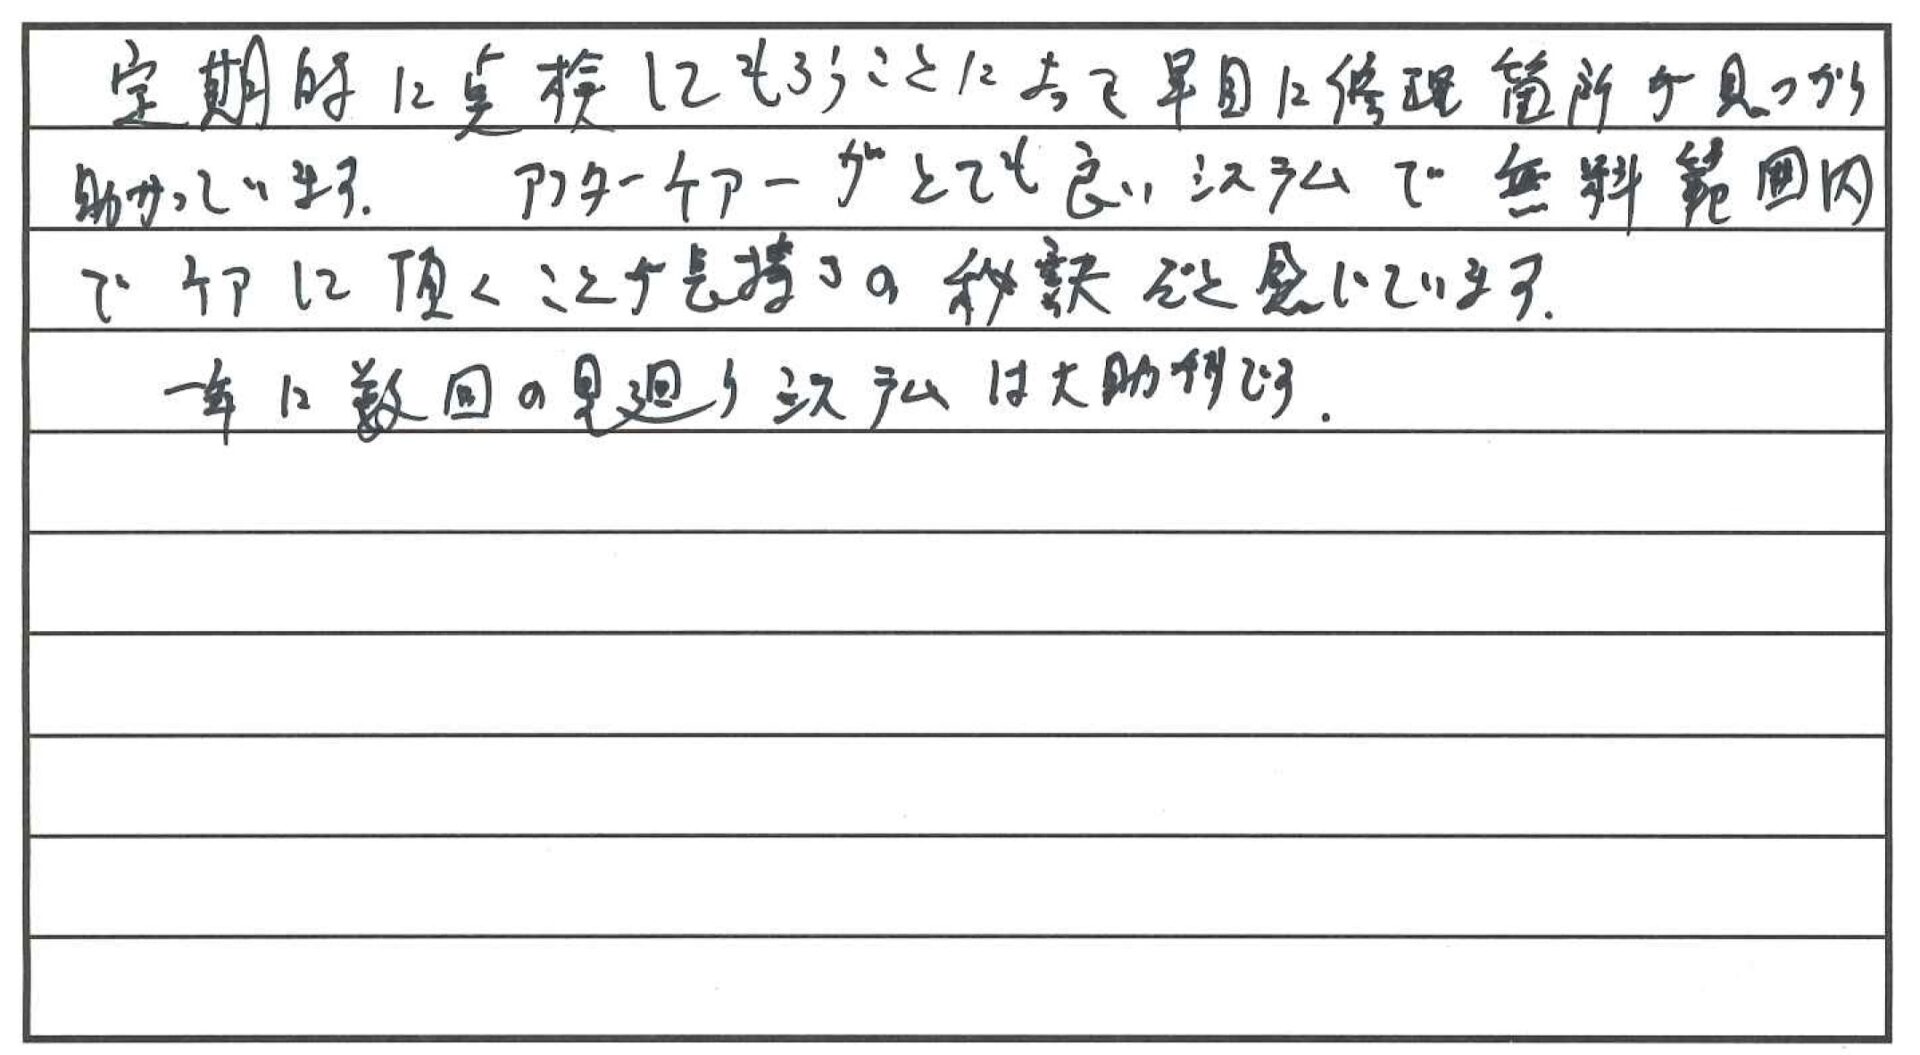 定期的に点検してもらうことによって早目に修理箇所が見つかり
助かっています. アフターケアーがとても良いシステムで無料範囲内
でケアして頂くことが長持ちの秘訣だと感じています.
一年に数回の見廻りシステムは大助かりです.